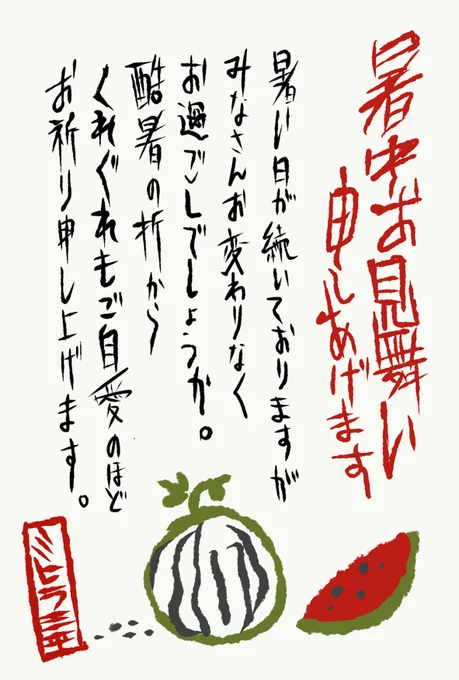 暑中お見舞い
申しあげます
暑い日が続いておりますが
みなさんお変わりなく
お過ごしでしょうか。
酷暑の折から
くれぐれもご自愛のほど
お祈り申し上げます。